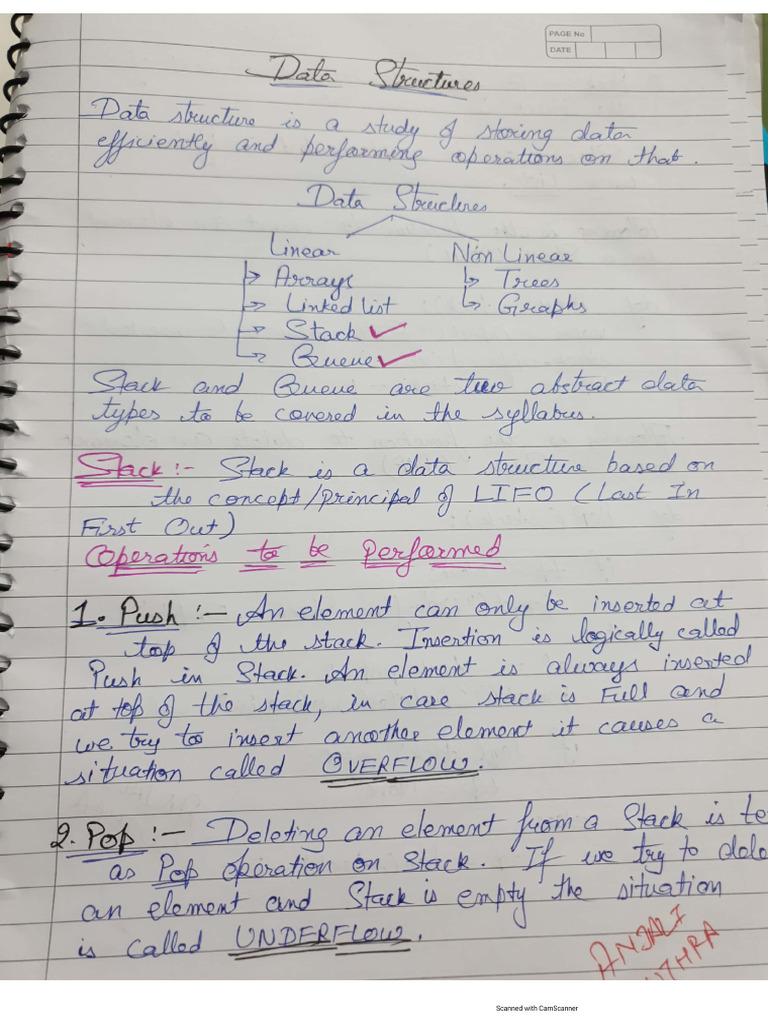 PAGE No
DATE
Data Structures
Data structure is a study of storing data
efficiently and performing operations on that.
Data Structures
Linear Non Linear
Arrays Trees
Linked list Graphs
Stack
Queue
Stack and Queue are two abstract data
types to be covered in the syllabus.
Stack :- Stack is a data structure based on
the concept/principal of LIFO (Last In
First Out)
Operations to be Performed
1. Push :- An element can only be inserted at
top of the stack. Insertion is logically called
Push in Stack. An element is always inserted
at top of the stack, in case stack is Full and
we try to insert another element it causes a
situation called OVERFLOW.
2. Pop :- Deleting an element from a Stack is te
as Pop operation on Stack. If we try to dele
an element and Stack is empty the situation
is called UNDERFLOW.
ANJALI
UTHRA
Scanned with CamScanner